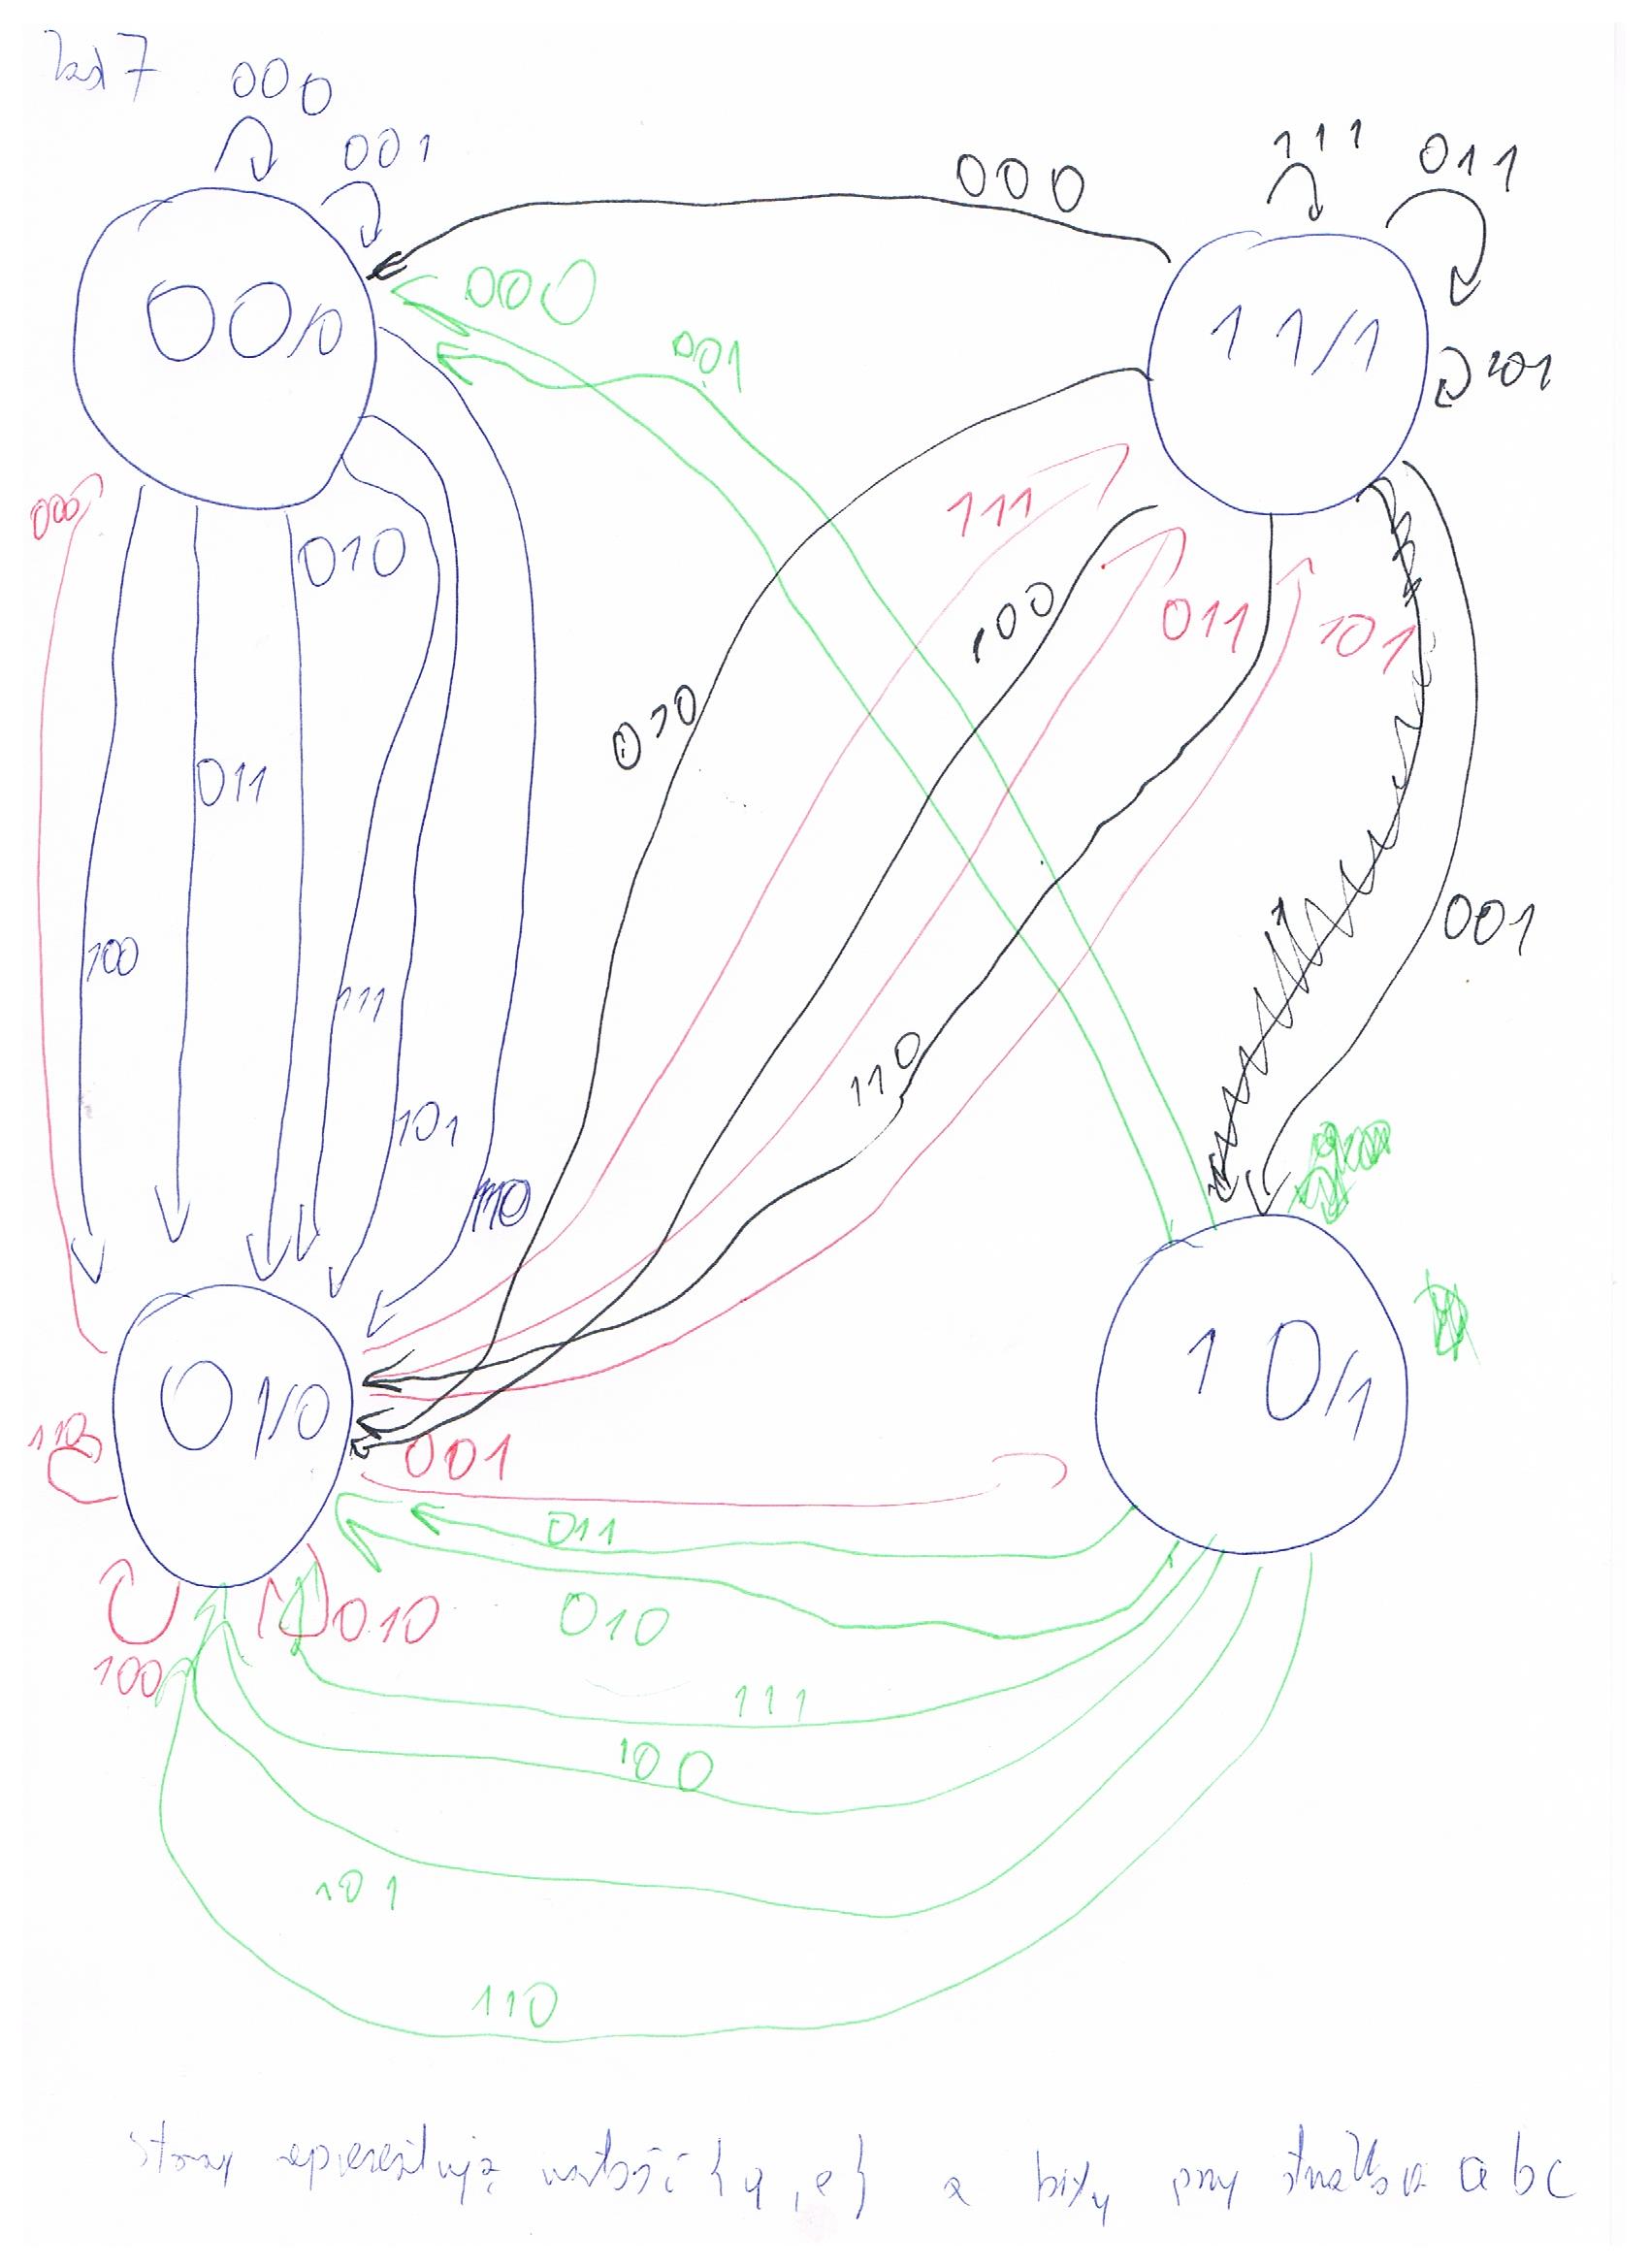 Zad 7
000
001
000
111
011
00/0
11/1
101
000
001
000
010
111
100
011
101
010
011
100
111
001
110
101
110
01/0
10/1
110
001
011
010
010
100
111
100
101
110
Stany reprezentują wartość {q, e} a bity przy strzałkach abc